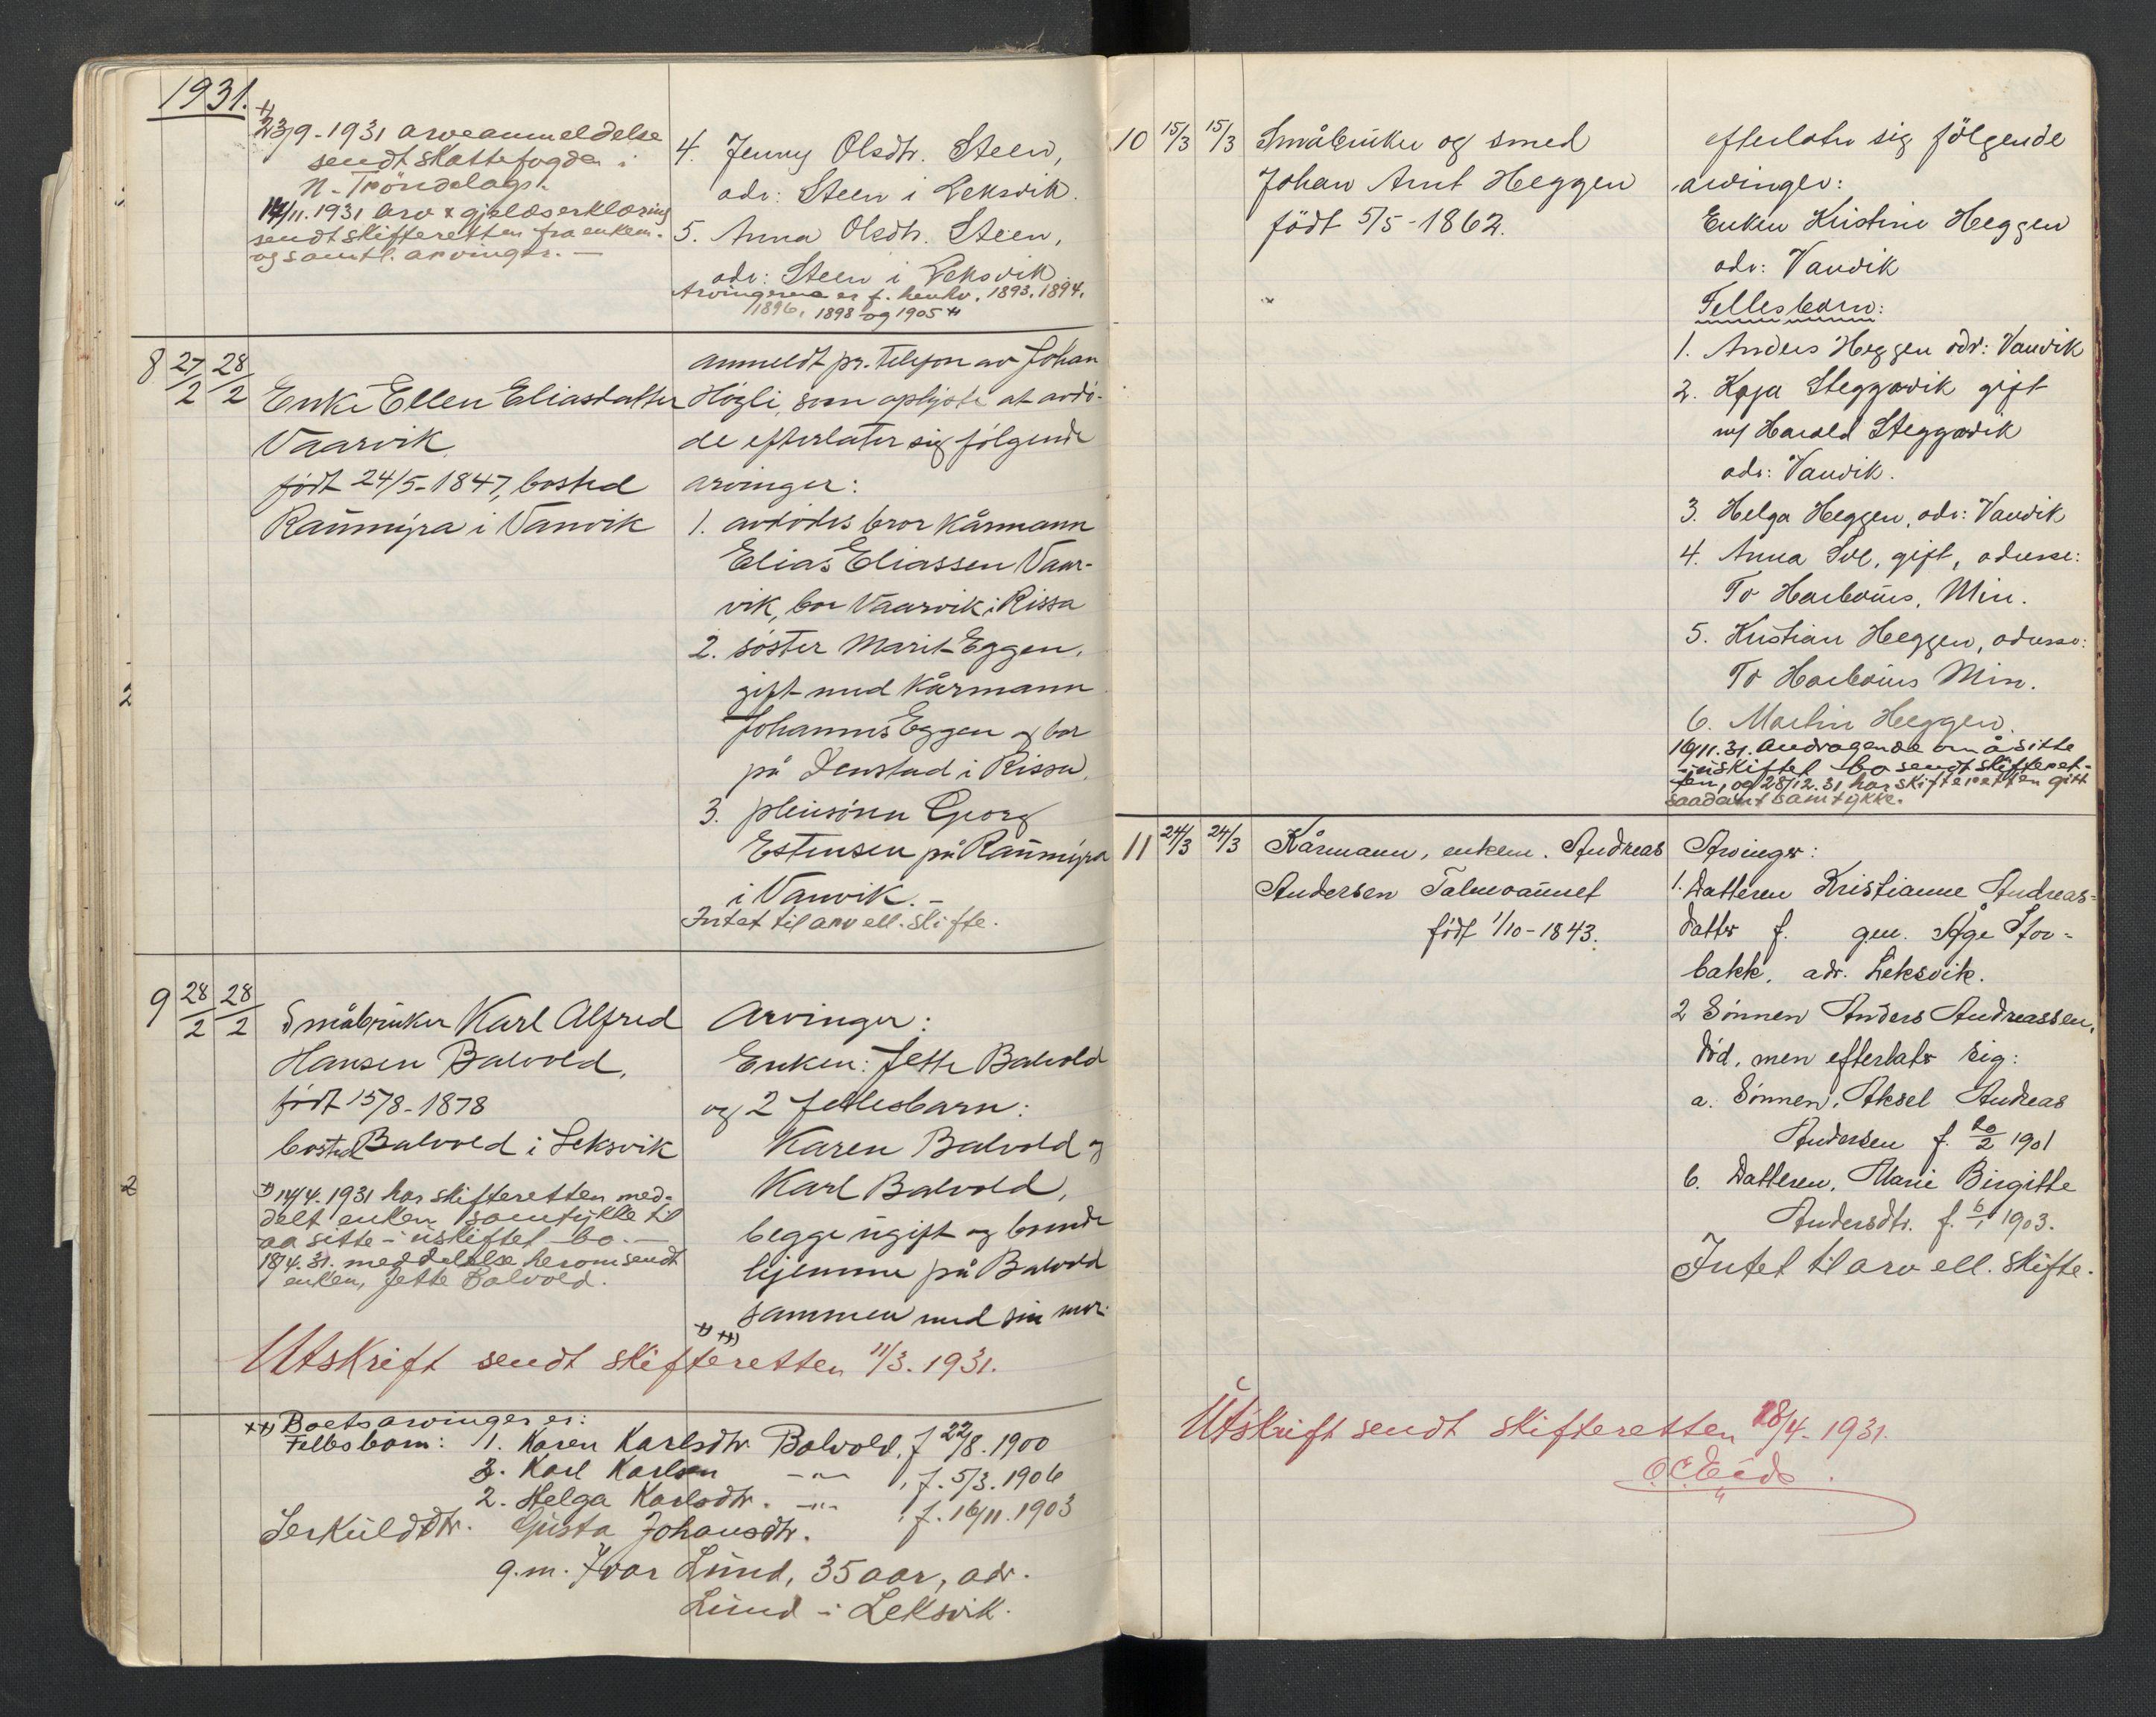 1931.
+) 23/9-1931 arveanmeldelse
sendt skattefogden i
N-Trøndelags.
14/11.1931 arv & gjeldserklæring
sendt skifteretten fra enken
og samtl. arvinger. —
4. Jenny Olsdtr. Steen,
adr: Steen i Leksvik.
5. Anna Olsdtr. Steen,
adr: Steen i Leksvik
Arvingerne er f. henhv. 1893, 1894,
1896, 1898 og 1905 +)
8 27/2 28/2
Enke Ellen Eliasdatter
Vaarvik
født 24/5-1847, bosted
Raumyra i Vanvik
anmeldt pr. telefon av Johan
Høgli, som oplyste at avdø-
de efterlater sig følgende
arvinger:
1. avdødes bror kårmann
Elias Eliassen Vaar-
vik, bor Vaarvik i Rissa
2. søster Marit Eggen,
gift med kårmann
Johannes Eggen og bor
på Denstad i Rissa.
3. pleiesønn Georg
Estensen på Raumyra
i Vanvik. —
Intet til arv ell. skifte.
9 28/2 28/2
Småbruker Karl Alfred
Hansen Balvold,
født 15/8-1878
bosted Balvold i Leksvik
+) 14/4.1931 har skifteretten med-
delt enken samtykke til
aa sitte i uskiftet bo. —
18/4.31. meddelelse herom sendt
enken, Jette Balvold.
Arvinger:
Enken: Jette Balvold
og 2 fellesbarn:
Karen Balvold og
Karl Balvold,
begge ugift og boende
hjemme på Balvold
sammen med sin mor.
+) ++)
Utskrift sendt skifteretten 11/3. 1931.
++) Boets arvinger er:
Fellesbarn: 1. Karen Karlsdtr. Balvold, f. 22/8. 1900
3. Karl Karlsen —"— , f. 5/3. 1906
2. Helga Karlsdtr. —"— , f. 16/11. 1903
Særkuldtr. Gusta Johansdtr.
g.m. Ivar Lund, 35 aar, adr.
Lund i Leksvik.
10 15/3 15/3
Småbruker og smed
Johan Arnt Heggen
født 5/5-1862.
efterlater sig følgende
arvinger:
Enken Kristine Heggen
adr: Vanvik
Fellesbarn:
1. Anders Heggen adr: Vanvik
2. Kaja Steggavik gift
m/ Harald Steggavik
adr: Vanvik.
3. Helga Heggen, adr: Vanvik
4. Anna Soe, gift, adresse:
To Harbours, Min.
5. Kristian Heggen, adresse:
To Harbours Min.
6. Martin Heggen.
16/11.31. andragende om å sitte
i uskiftet bo sendt skifteret-
ten, og 28/12.31 har skifteretten gitt
saadant samtykke.
11 24/3 24/3
Kårmann, enkem. Andreas
Andersen Talmoaunet
født 1/10-1843.
Arvinger:
1. Datteren Kristianne Andreas-
datter f. gen. Åge Stor-
bakk, adr. Leksvik.
2 Sønnen Anders Andreassen,
død, men efterlater sig:
a. Sønnen, Aksel Andreas
Andersen f. 20/2 1901
b. Datteren, Marie Birgitte
Andersdtr. f. 6/1 1903.
Intet til arv ell. skifte.
Utskrift sendt skifteretten 18/4-1931.
O.C. Eids.